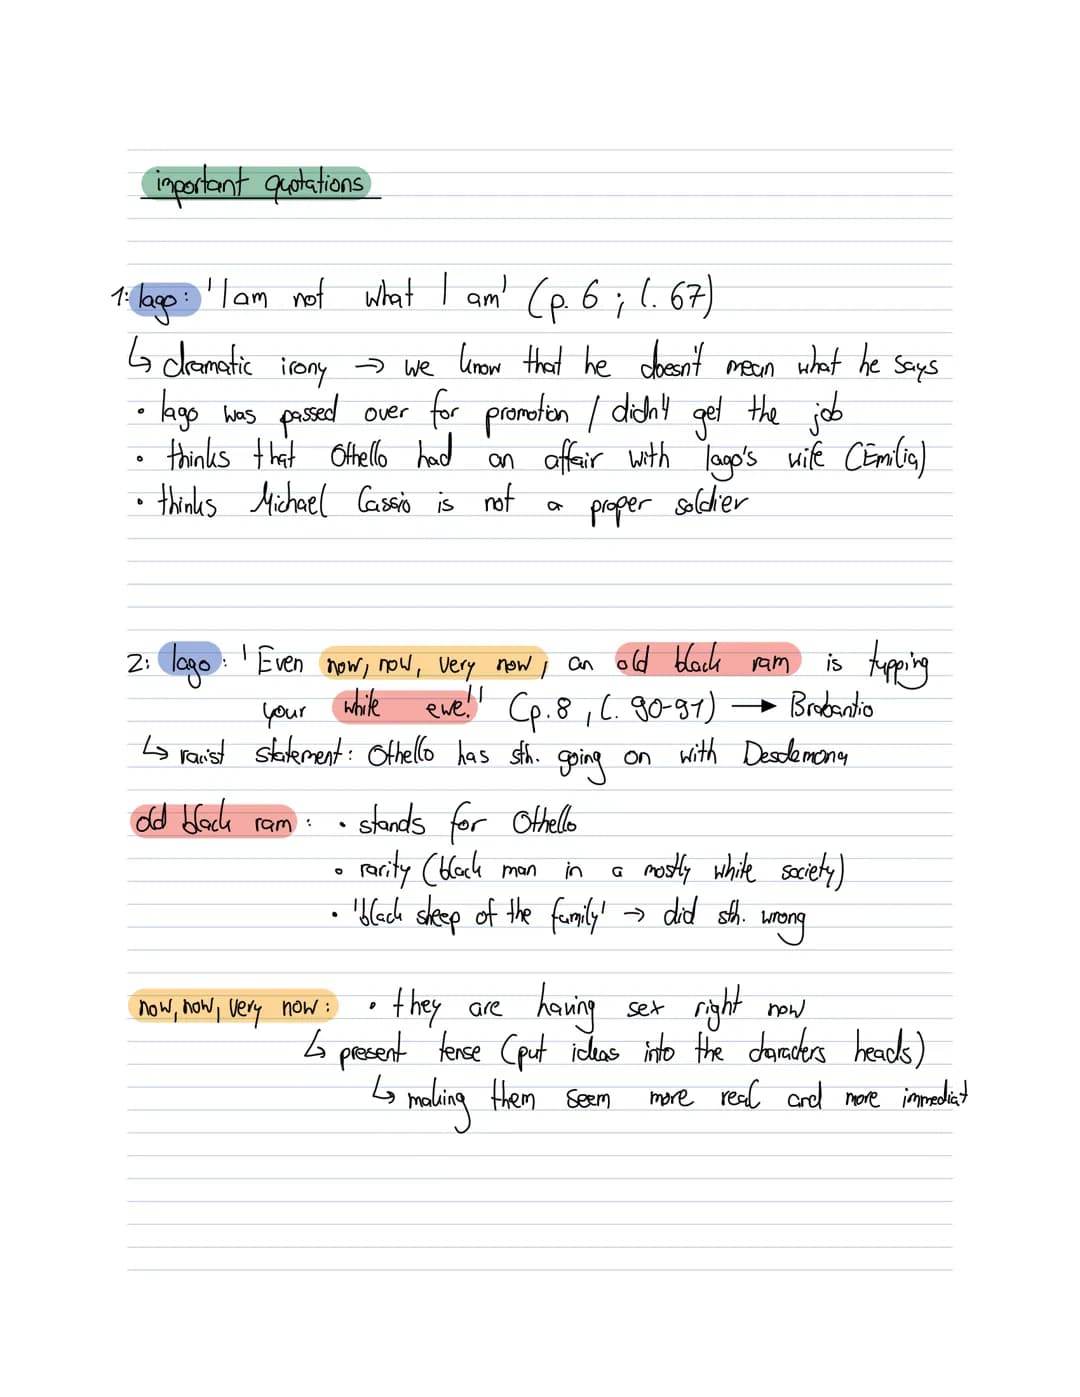 important quotations
1: Iago: 'I am not what I am' (p. 6 ; l. 67)
↳ dramatic irony → we know that he doesn't mean what he says
• Iago was passed over for promotion / didn't get the job
• thinks that Othello had an affair with Iago's wife (Emilia)
• thinks Michael Cassio is not a proper soldier
2: Iago: 'Even now, now, very now, an old black ram is tupping
your white ewe!' (p. 8, l. 90-91) → Brabantio
↳ racist statement: Othello has sth. going on with Desdemona
old black ram: • stands for Othello
• rarity (black man in a mostly white society)
• 'black sheep of the family' → did sth. wrong
now, now, very now: • they are having sex right now
↳ present tense (put ideas into the characters heads)
↳ making them seem more real and more immediat